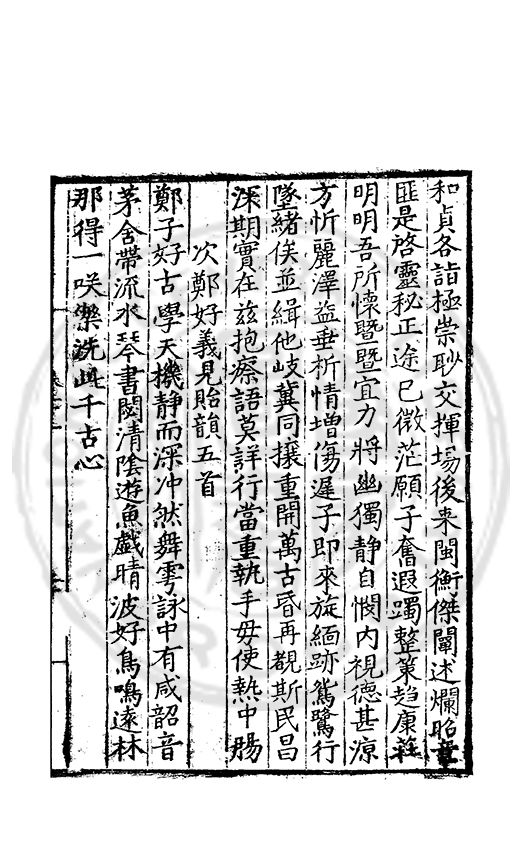 和貞各詣極崇耿交揮場後来閩衡傑闡述爛昭章
匪是啓靈秘正途已微茫願子奮遐躅整策趋康莊
明明吾所懷暨暨宜力將幽獨静自憫内視德甚凉
方忻麗澤益垂析情增傷遲子即來旋緬跡鴛鷺行
墜緒俟並緝他岐冀同攘重開萬古昏再覩斯民昌
深期實在兹抱瘵語莫詳行當重執手毋使熱中腸
次鄭好義見貽韻五首
鄭子好古學天機静而深冲然舞雩詠中有咸韶音
茅舍帶流水琴書閟清陰遊魚戯晴波好鳥鳴遠林
那得一咲樂洗此千古心